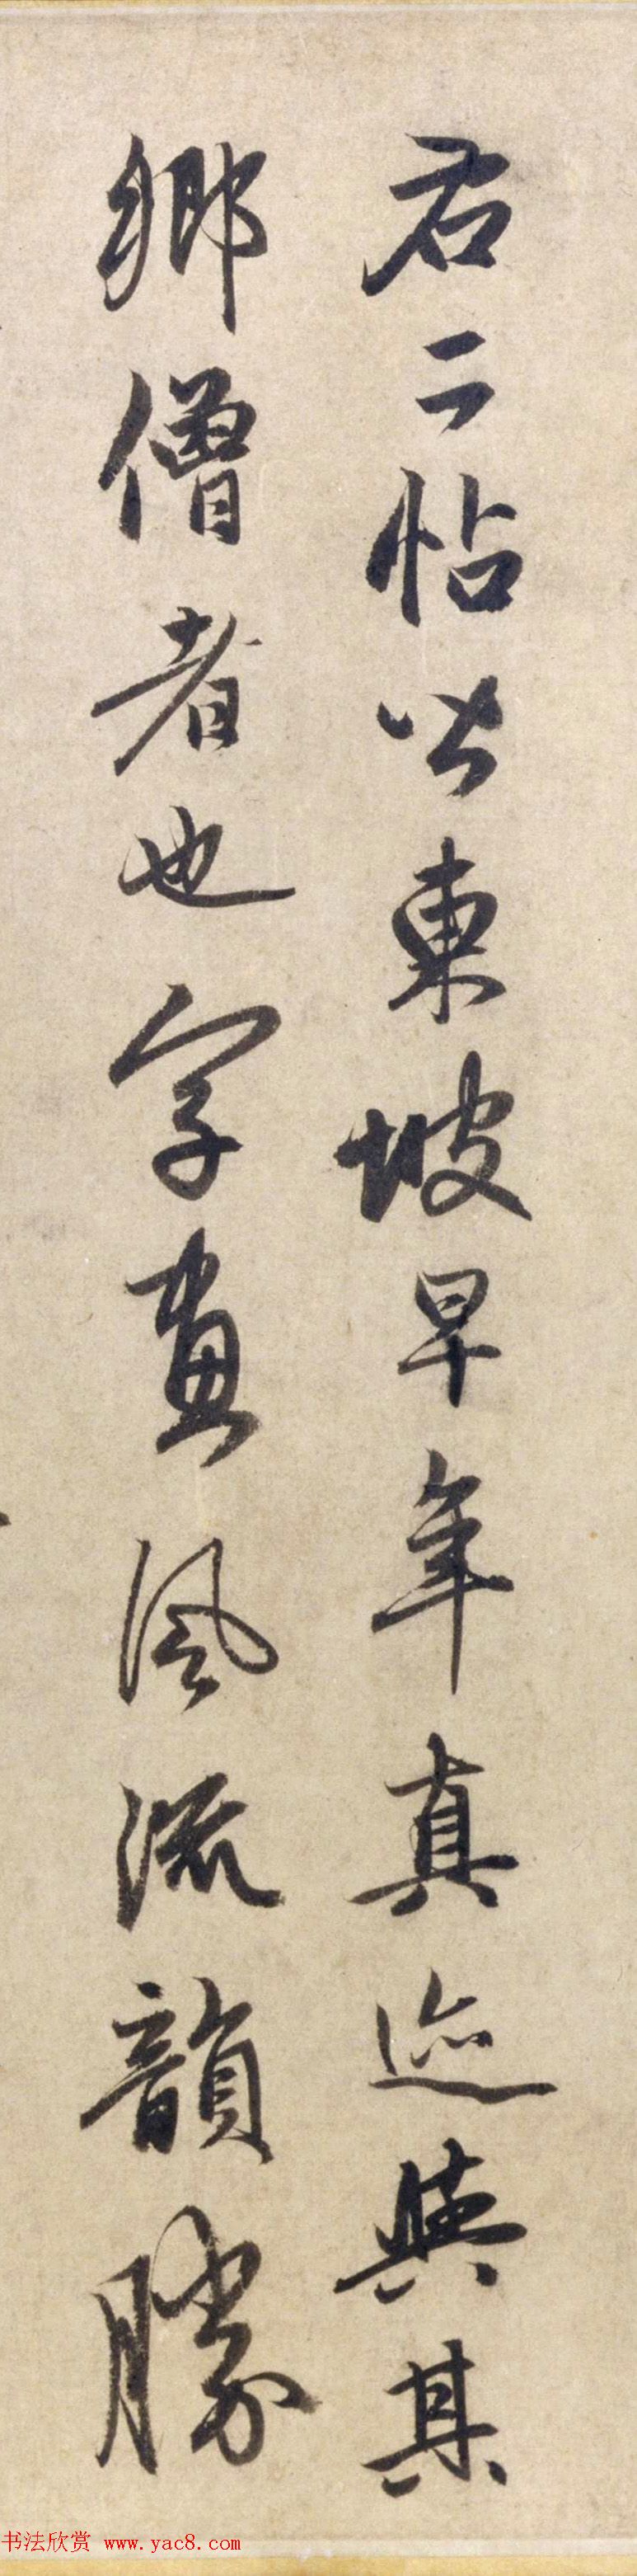 右二帖皆東坡早年真迹與其
鄉僧者也字畫風流韻勝
书法欣赏 www.yac8.com